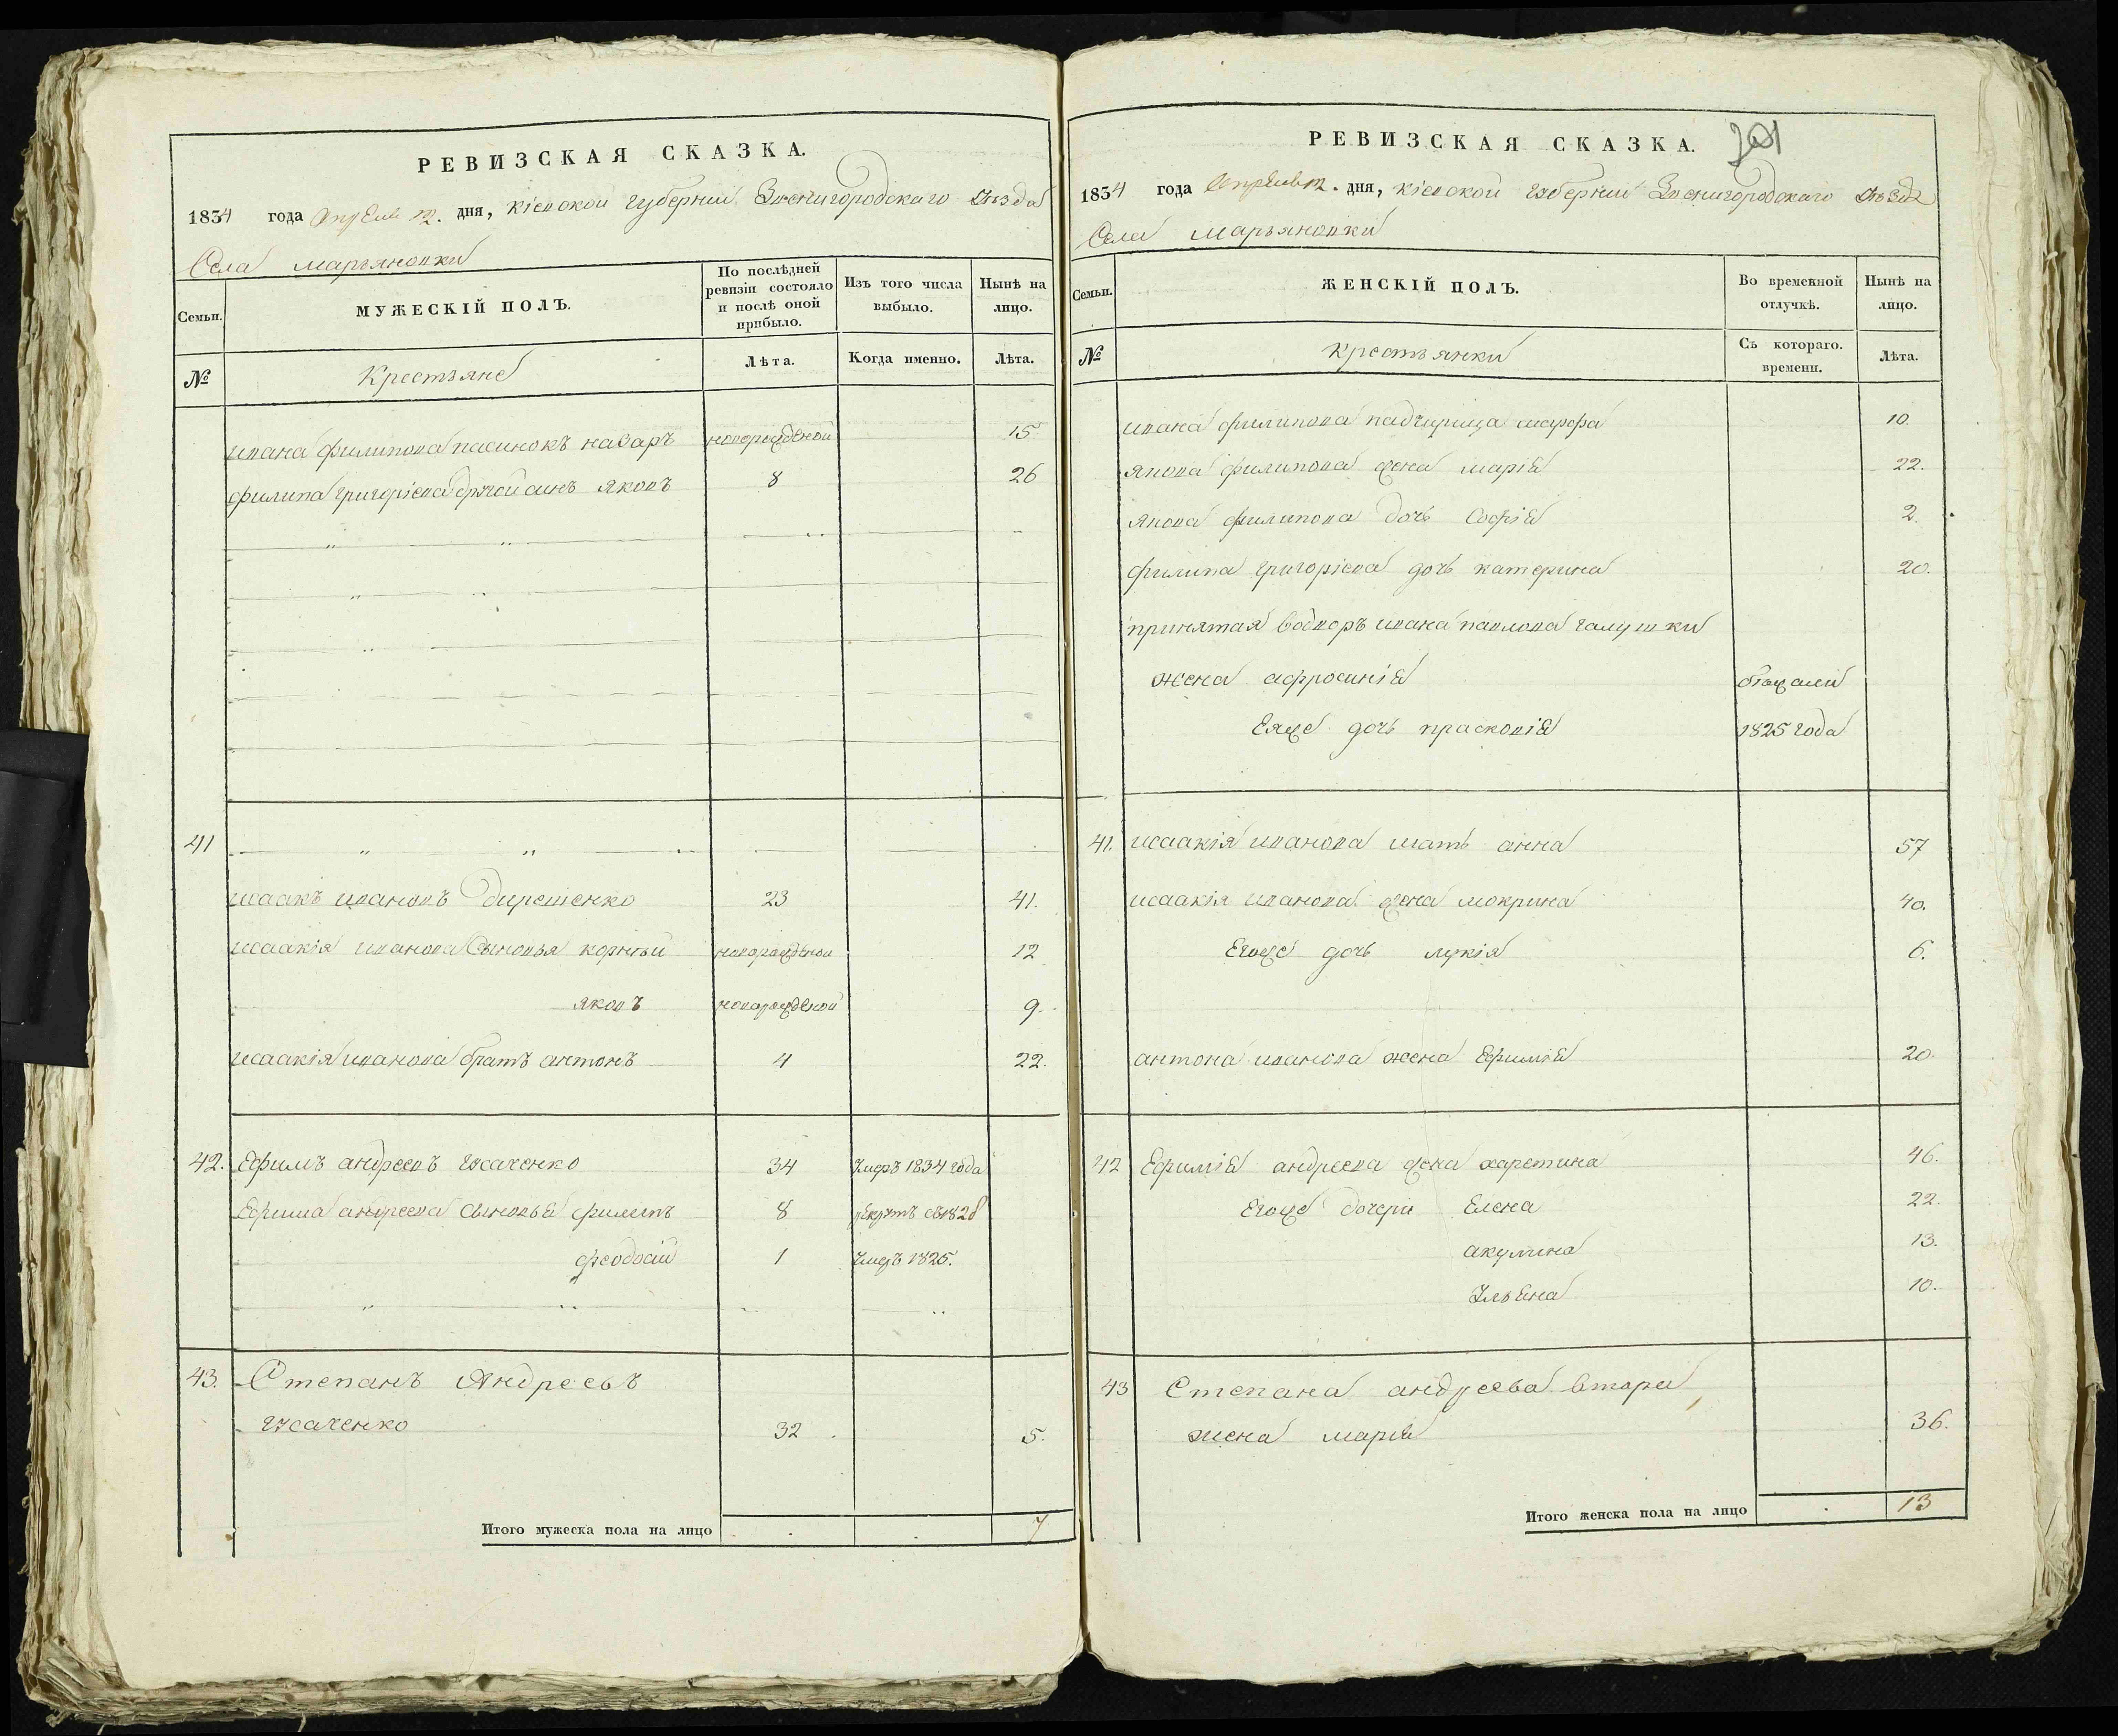 РЕВИЗСКАЯ СКАЗКА.
1834 года Апреля 12. дня, Кіевской губерніи Звенигородскаго Уѣзда
Села Марьяновки
Семьи.
МУЖЕСКІЙ ПОЛЪ.
По послѣдней ревизіи состояло и послѣ оной прибыло.
Изъ того числа выбыло.
Нынѣ на лицо.
№
Крестьяне
Лѣта.
Когда именно.
Лѣта.
ивана филипова пасинокъ назаръ новорожденой 15
филипа григоріева другой синъ яковъ 8 26
41
исаакъ ивановъ 23 41.
исаакія иванова Сыновья корній новорожденой 12
яковъ новорожденой 9.
исаакія иванова братъ антонъ 4 22.
42. Ефимъ андреевъ Усаченко 34 Умеръ 1834 года
Ефима андреева Сыновье филипъ 8 рекрутъ съ 1828
феодосій 1 Умеръ 1825.
43. Степанъ Андреевъ
Усаченко 32 5.
Итого мужеска пола на лицо 7
РЕВИЗСКАЯ СКАЗКА. 201
1834 года Апреля 12. дня, Кіевской губерніи Звенигородскаго Уѣзда
Села Марьяновки
Семьи.
ЖЕНСКІЙ ПОЛЪ.
Во временной отлучкѣ.
Нынѣ на лицо.
№
Крестьянки
Съ котораго. времени.
Лѣта.
ивана филипова падчирица марфа 10.
якова филипова жена маріе 22.
якова филипова дочь Софіе 2.
филипа григоріева дочь катерина 20.
принятая водворъ ивана павлова галушки
жена афросиніе
Еяже дочь прасковіе 1825 года
41. исаакія иванова мать анна 57
исаакія иванова жена мокрина 40.
Егоже дочь лукія 6.
антона иванова жена Ефиміе 20.
42 андреева жена харетина 46.
Егоже дочери Елена 22.
акулина 13.
Ульена 10.
43 Степана андреева втора
жена маріе 36.
Итого женска пола на лицо 13